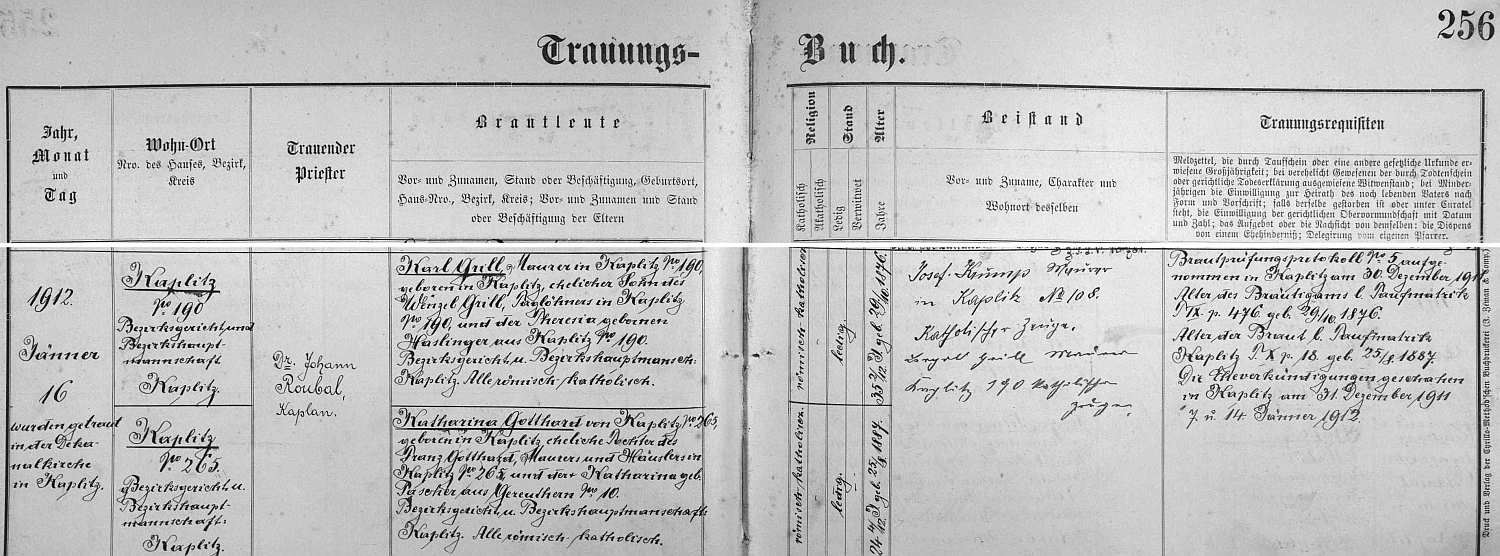 256
Trauungs-Buch.
Jahr,
Monat
und
Tag
Wohn-Ort
Nro. des Hauses, Bezirk,
Kreis
Trauender
Priester
Brautleute
Vor- und Zunamen, Stand oder Beschäftigung, Geburtsort,
Haus-Nro., Bezirk, Kreis; Vor- und Zunamen und Stand
oder Beschäftigung der Eltern
Religion
Katholisch
Akatholisch
Stand
Ledig
Verwitwet
Alter
Jahre
Beistand
Vor- und Zuname, Charakter und
Wohnort desselben
Trauungsrequisiten
Meldzettel, die durch Taufschein oder eine andere gesetzliche Urkunde er-
wiesene Großjährigkeit; bei verehelicht Gewesenen der durch Todtenschein
oder gerichtliche Todeserklärung ausgewiesene Witwenstand; bei Minder-
jährigen die Einwilligung zur Heirath des noch lebenden Vaters nach
Form und Vorschrift; falls derselbe gestorben ist oder unter Curatel
steht, die Einwilligung der gerichtlichen Obervormundschaft mit Datum
und Zahl; das Aufgebot oder die Nachsicht von demselben; die Dispens
von einem Ehehinderniß; Delegirung vom eigenen Pfarrer.
1912.
Jänner
16
wurden getraut
in der Deka-
nalkirche
in Kaplitz.
Kaplitz
No 190
Bezirksgericht und
Bezirkshaupt-
mannschaft
Kaplitz.
Kaplitz
No 265.
Bezirksgericht u.
Bezirkshaupt-
mannschaft:
Kaplitz.
Dr. Johann
Roubal,
Kaplan.
Karl Grill, Maurer in Kaplitz No 190,
geboren in Kaplitz, ehelicher Sohn des
Wenzel Grill, Taglöhners in Kaplitz
No 190, und der Theresia gebornen
Haslinger aus Kaplitz No 190.
Bezirksgericht u. Bezirkshauptmansch:
Kaplitz. Alle römisch-katholisch.
Katharina Gotthard von Kaplitz No 265,
geboren in Kaplitz, eheliche Tochter des
Franz Gotthard, Maurers und Häuslers in
Kaplitz No 265, und der Katharina geb.
Pascher aus Gereuthern No 10.
Bezirksgericht u. Bezirkshauptmannschaft
Kaplitz. Alle römisch-katholisch.
römisch-katholisch
ledig.
35 2/12 J geb. 29/10 1876.
römisch-katholisch.
ledig.
24 4/12 J geb. 25/8 1887.
Josef Krump Maurer
in Kaplitz No 108.
Katholischer Zeuge.
Grill Maurer
Kaplitz 190 katholischer
Zeuge.
Brautprüfungsprotokoll No 5 aufge-
nommen in Kaplitz am 30. Dezember 1911.
Alter des Bräutigams l. Taufmatrik
T IX p. 476 geb. 29/10. 1876.
Alter der Braut l. Taufmatrik
Kaplitz T. X p. 18. geb. 25/8. 1887.
Die Eheverkündigungen geschahen
in Kaplitz am 31. Dezember 1911
7. u. 14 Jänner 1912.
Druck und Verlag der Cyrillo-Method'schen Buchdruckerei (J. Zeman & Comp.)